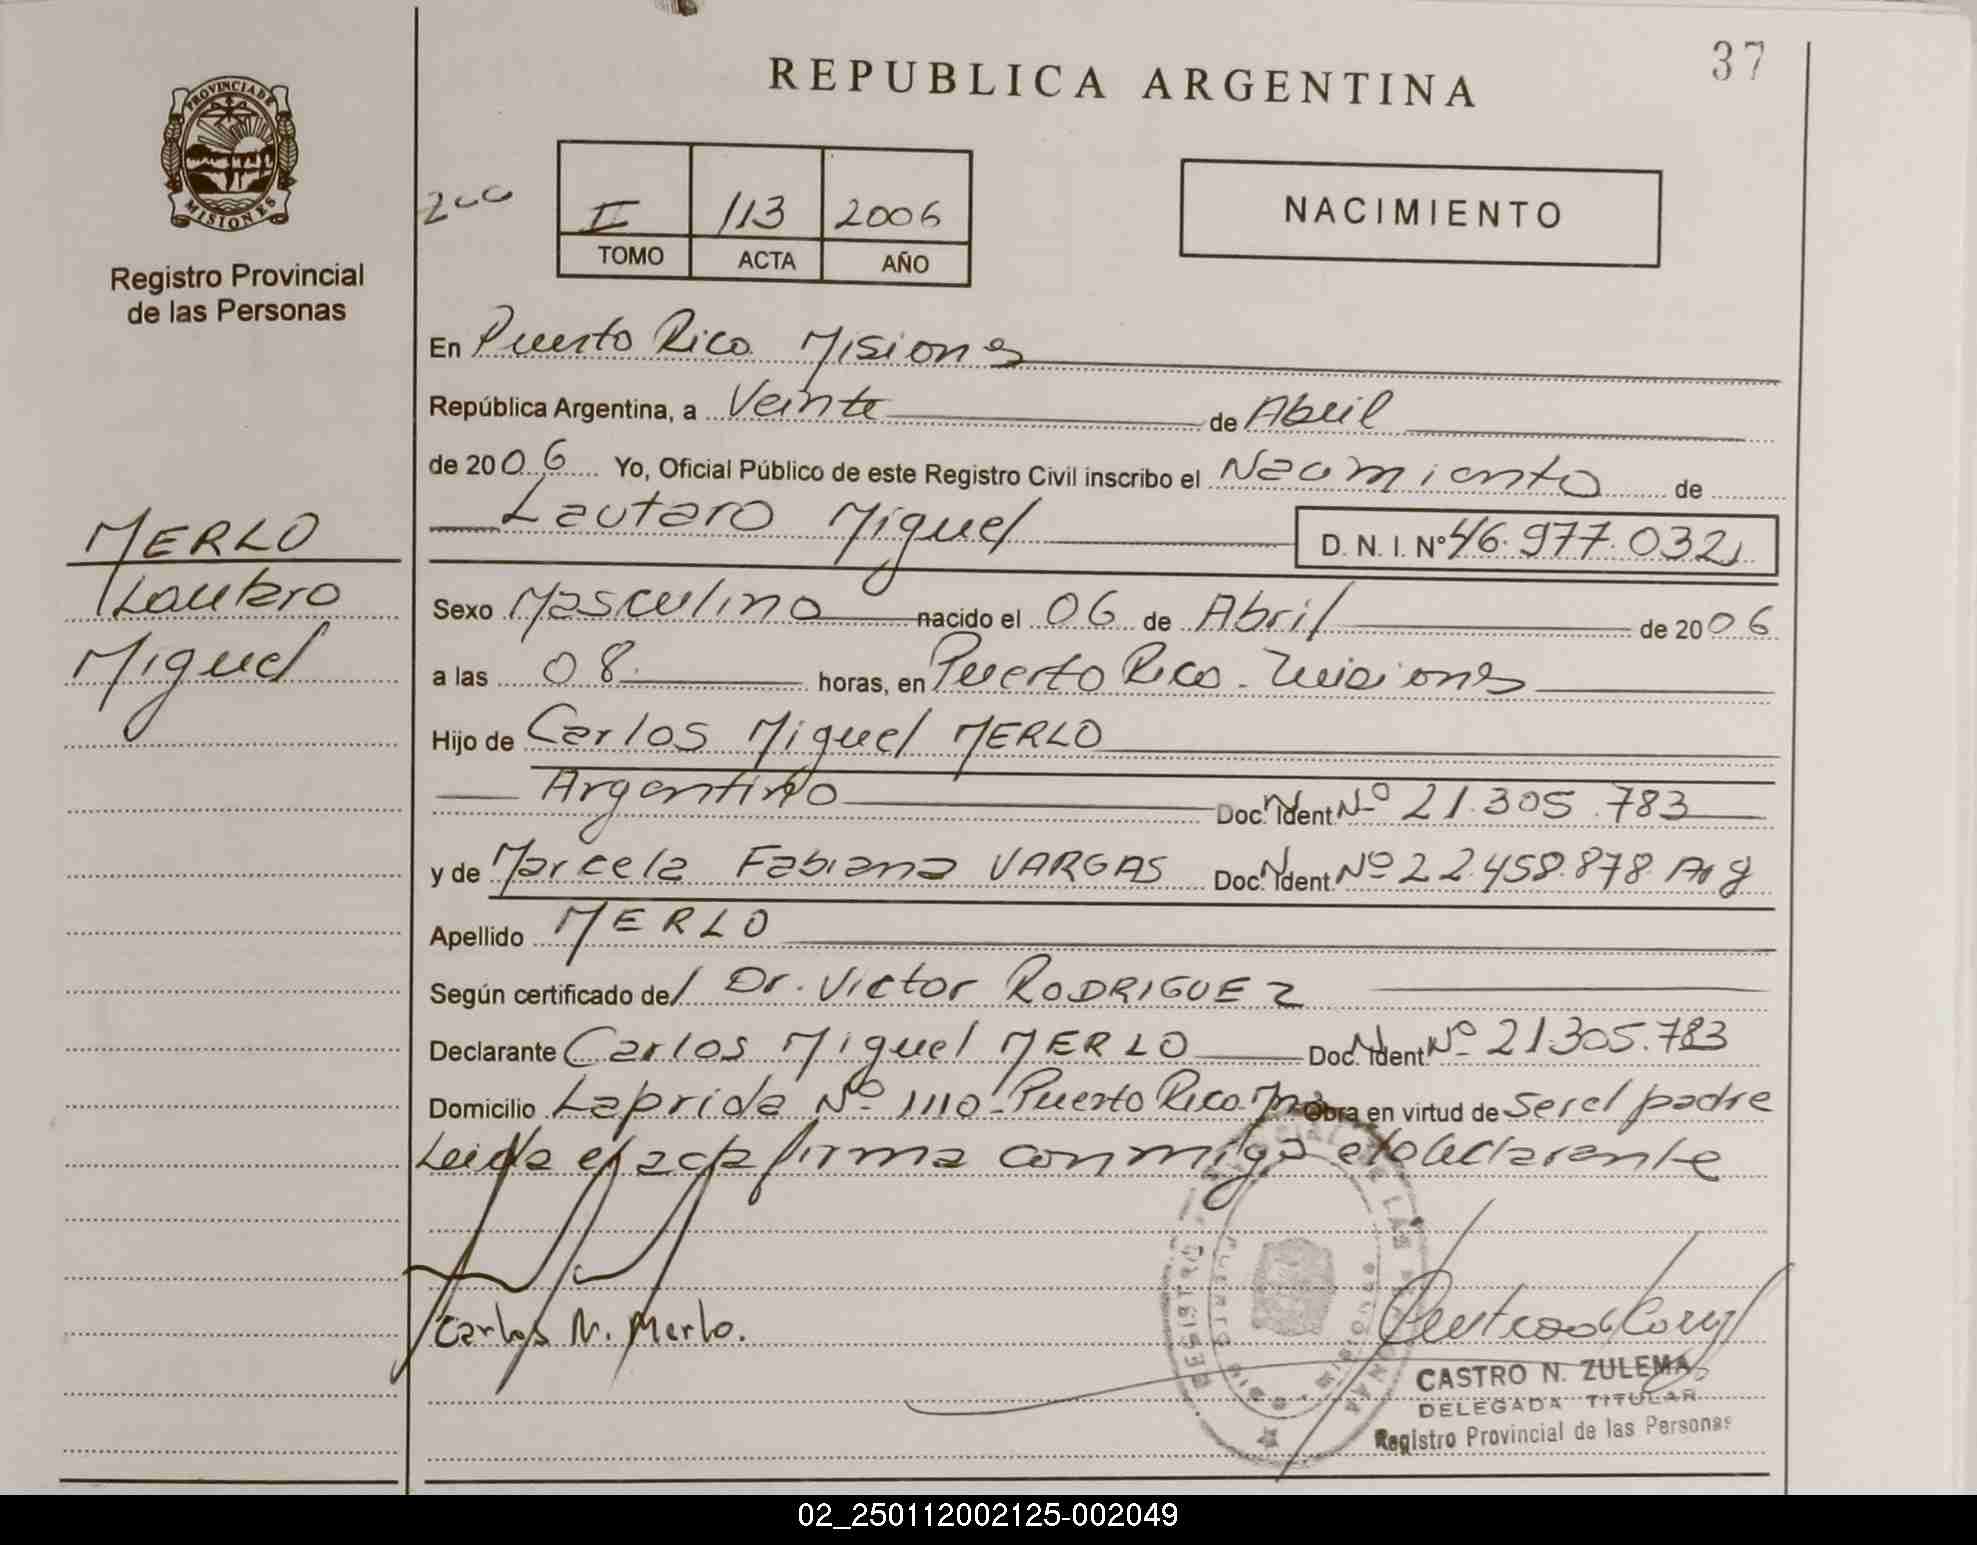 37
REPUBLICA ARGENTINA
PROVINCIA DE
MISIONES
Registro Provincial
de las Personas
200
II 113 2006
TOMO ACTA AÑO
NACIMIENTO
En Puerto Rico Misiones
República Argentina, a Veinte de Abril
de 2006 Yo, Oficial Público de este Registro Civil inscribo el Nacimiento de
Lautaro Miguel D. N. I. Nº 46.977.032
MERLO
Lautaro
Miguel
Sexo Masculino nacido el 06 de Abril de 2006
a las 08 horas, en Puerto Rico - Misiones
Hijo de Carlos Miguel MERLO
Argentino Doc. Ident. Nº 21.305.783
y de Marcela Fabiana VARGAS Doc. Ident. Nº 22.458.878 Arg
Apellido MERLO
Según certificado del Dr. Victor RODRIGUEZ
Declarante Carlos Miguel MERLO Doc. Ident. Nº 21.305.783
Domicilio Laprida Nº 1110 - Puerto Rico. Obra en virtud de ser el padre
Leida el acta firma conmigo el declarante
Carlos M. Merlo.
CASTRO N. ZULEMA
DELEGADA TITULAR
Registro Provincial de las Personas
02_250112002125-002049